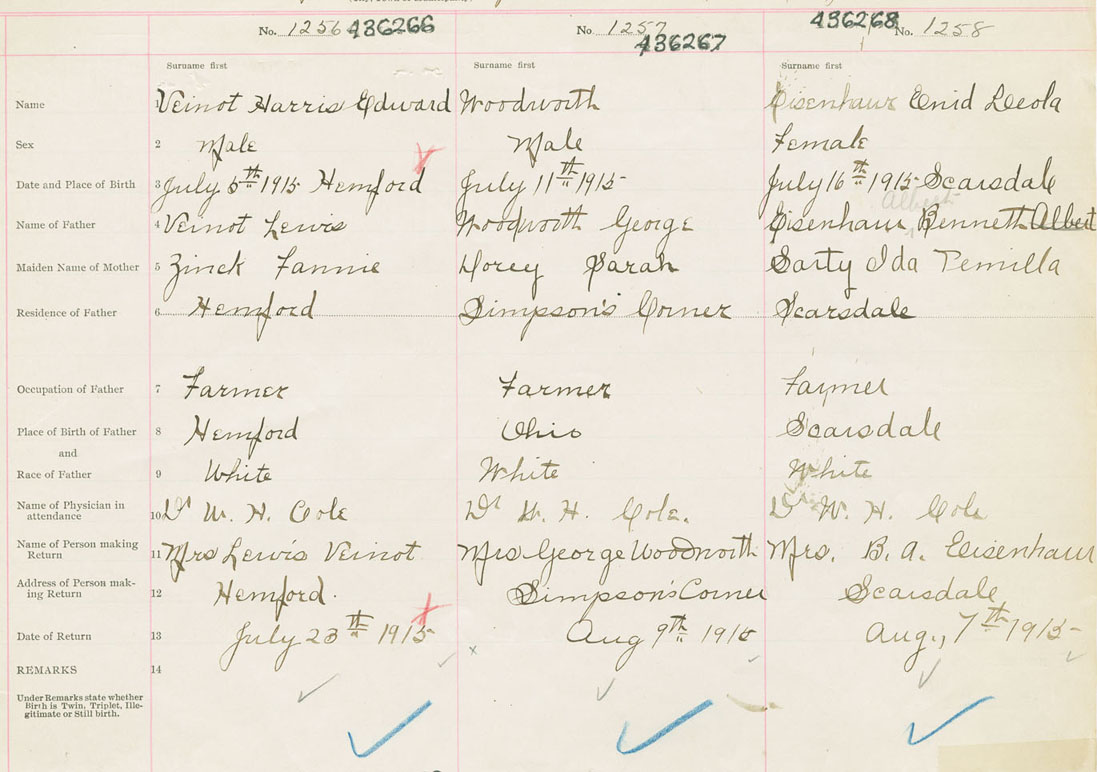 No. 1256 436266 No. 1257 436267 436268 No. 1258
Surname first Surname first Surname first
Name 1 Veinot Harris Edward Woodworth Eisenhaur Enid Leola
Sex 2 Male Male Female
Date and Place of Birth 3 July 5th 1915 Hemford July 11th 1915 July 16th 1915 Scarsdale
Albert
Name of Father 4 Veinot Lewis Woodworth George Eisenhaur Bennett Albert
Maiden Name of Mother 5 Zinck Fannie Dorey Sarah Sarty Ida Temilla
Residence of Father 6 Hemford Simpson's Corner Scarsdale
Occupation of Father 7 Farmer Farmer Farmer
Place of Birth of Father 8 Hemford Ohio Scarsdale
and
Race of Father 9 White White White
Name of Physician in
attendance 10 Dr W. H. Cole Dr W. H. Cole. Dr W. H. Cole
Name of Person making
Return 11 Mrs Lewis Veinot Mrs George Woodworth Mrs. B. A. Eisenhaur
Address of Person mak-
ing Return 12 Hemford. Simpson's Corner Scarsdale
Date of Return 13 July 23th 1915 Aug 9th 1915 Aug., 7th 1915
REMARKS 14
Under Remarks state whether
Birth is Twin, Triplet, Ille-
gitimate or Still birth.